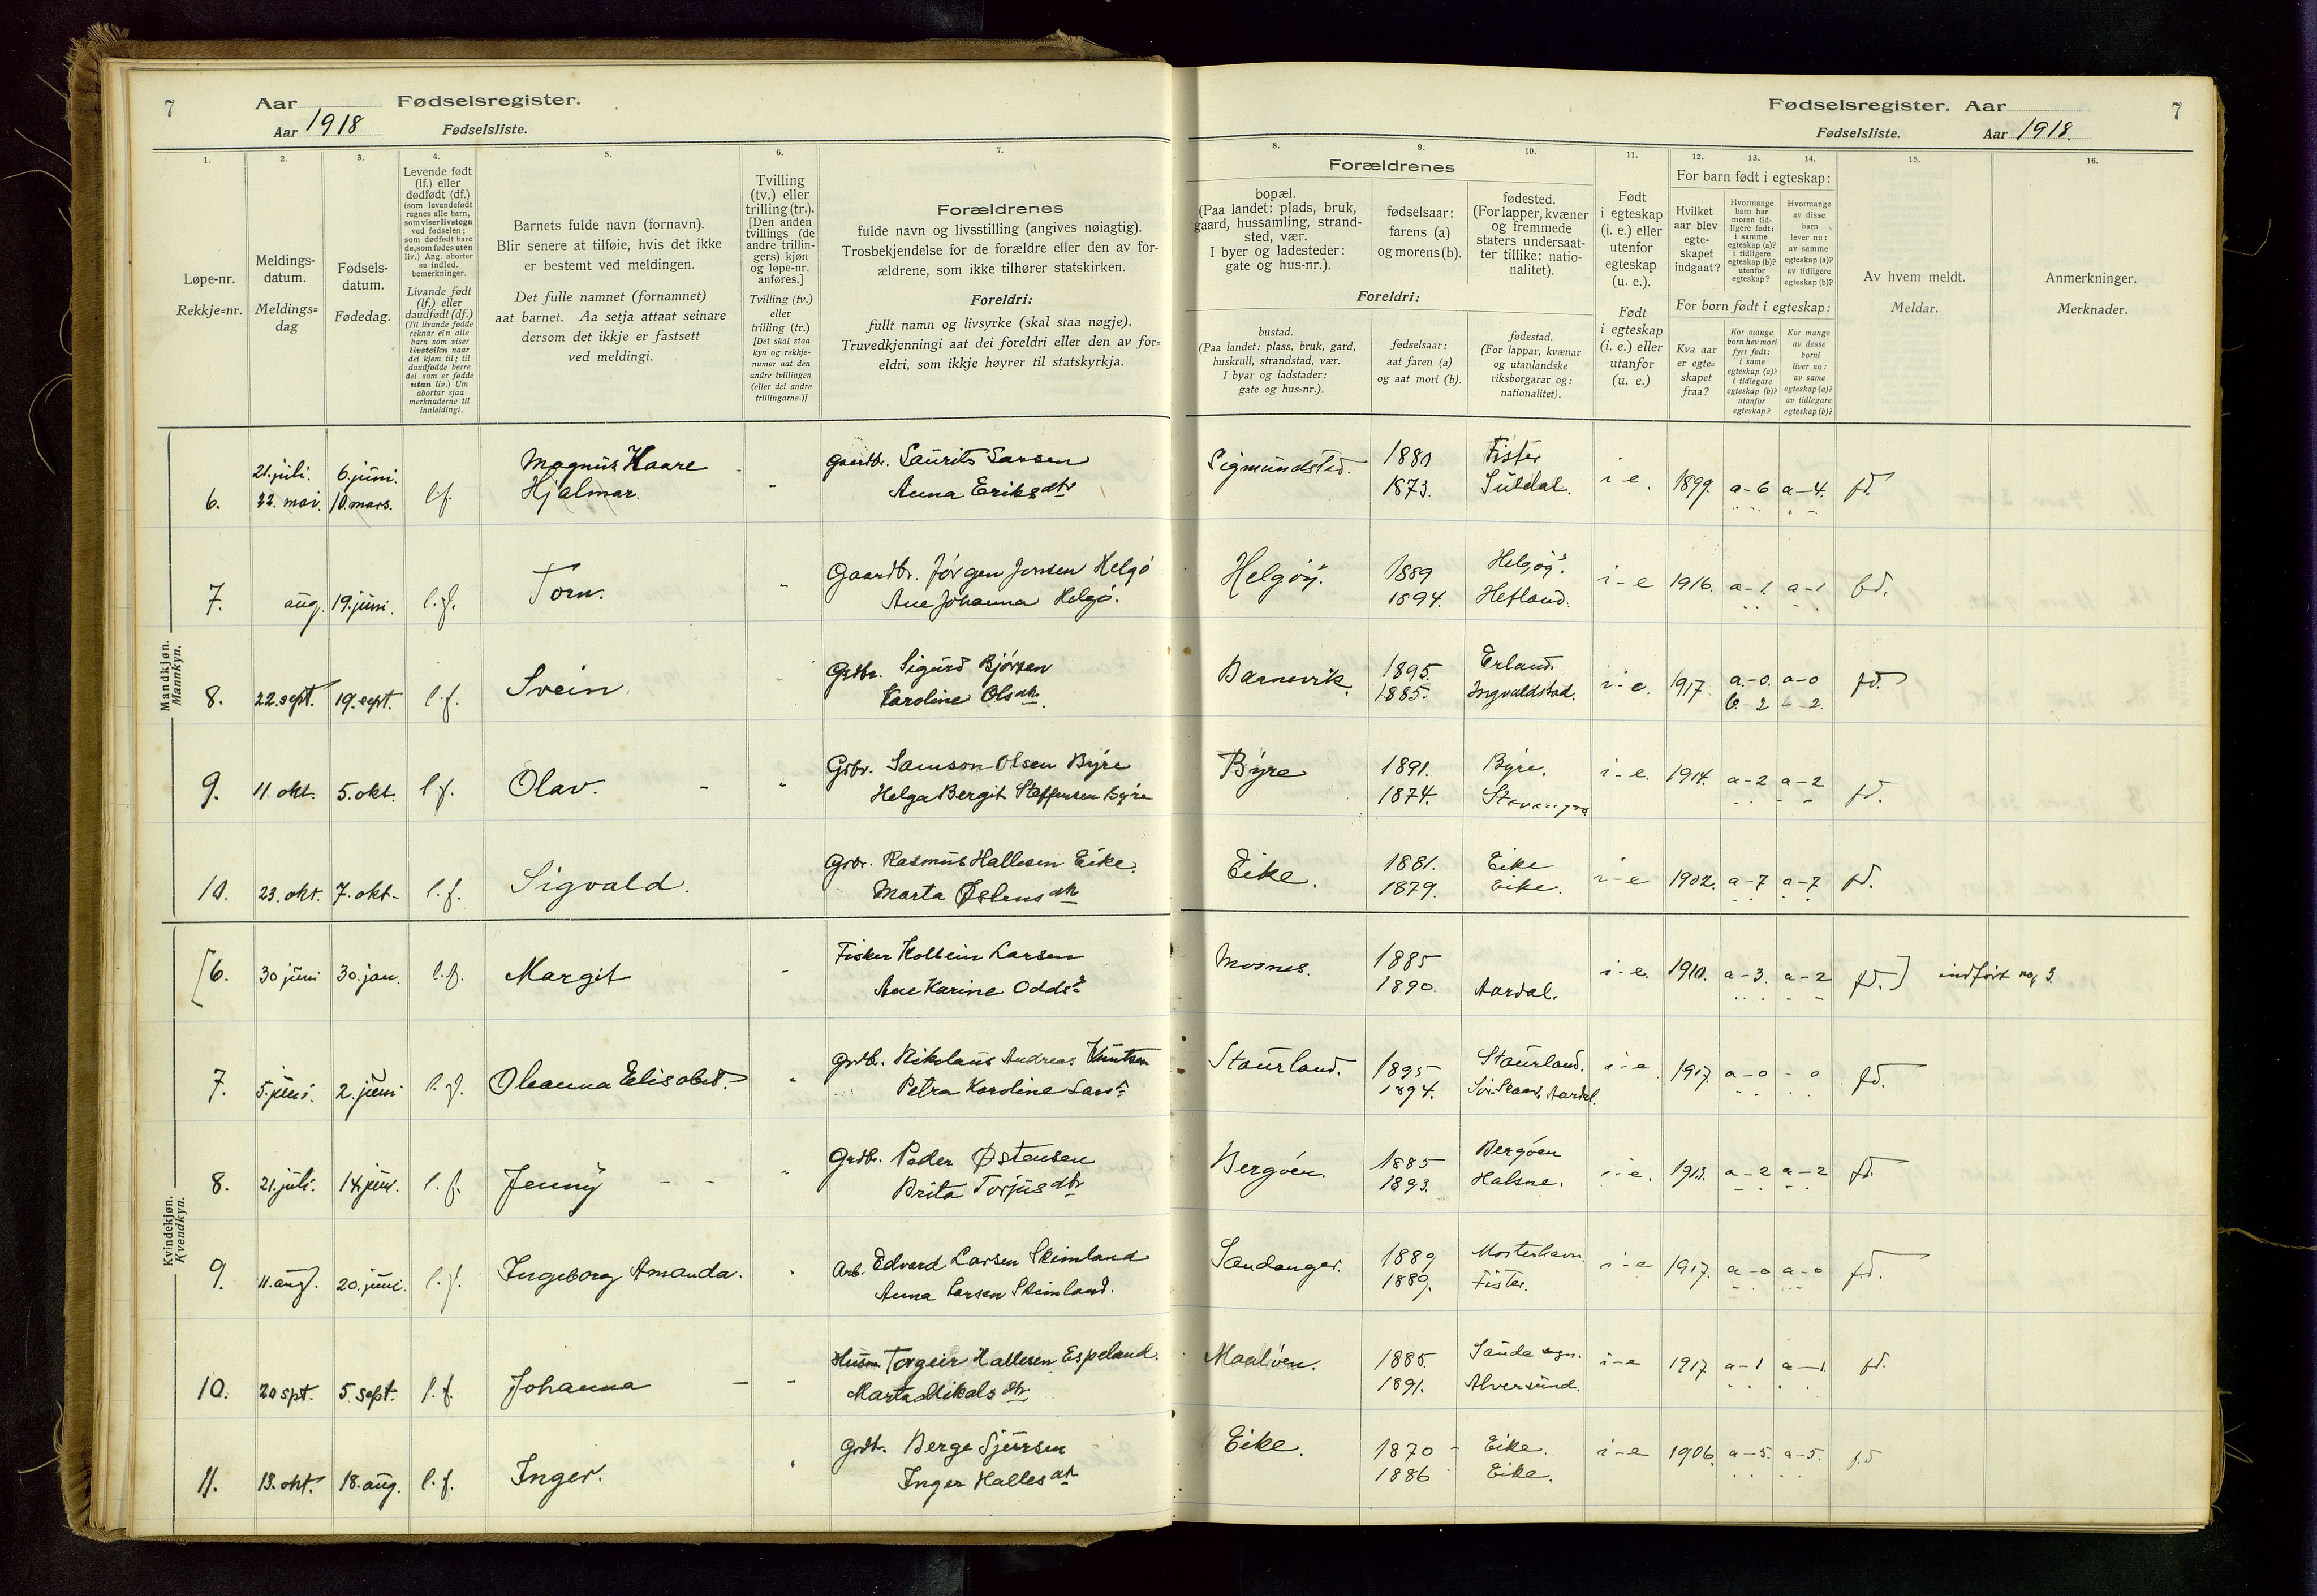 7 Aar Fødselsregister.
Aar 1918 Fødselsliste.
1. 2. 3. 4. 5. 6. 7.
Løpe-nr.
Rekkje=nr.
Meldings-
datum.
Meldings=
dag
Fødsels-
datum.
Fødedag.
Levende født
(lf.) eller
dødfødt (df.)
(som levendefødt
regnes alle barn,
som viser livstegn
ved fødselen;
som dødfødt bare
de, som fødes uten
liv.) Ang. aborter
se indled.
bemerkninger.
Livande født
(lf.) eller
daudfødt (df.)
(Til livande fødde
reknar ein alle
barn som viser
livsteikn naar
dei kjem til; til
daudfødde berre
dei som er fødde
utan liv.) Um
abortar sjaa
merknaderne til
innleidingi.
Barnets fulde navn (fornavn).
Blir senere at tilføie, hvis det ikke
er bestemt ved meldingen.
Det fulle namnet (fornamnet)
aat barnet. Aa setja attaat seinare
dersom det ikkje er fastsett
ved meldingi.
Tvilling
(tv.) eller
trilling (tr.).
[Den anden
tvillings (de
andre trillin-
gers) kjøn
og løpe-nr.
anføres.]
Tvilling (tv.)
eller
trilling (tr.)
[Det skal staa
kyn og rekkje-
numer aat den
andre tvillingen
(eller dei andre
trillingarne.)]
Forældrenes
fulde navn og livsstilling (angives nøiagtig).
Trosbekjendelse for de forældre eller den av for-
ældrene, som ikke tilhører statskirken.
Foreldri:
fullt namn og livsyrke (skal staa nøgje).
Truvedkjenningi aat dei foreldri eller den av for=
eldri, som ikkje høyrer til statskyrkja.
Fødselsregister. Aar 7
Fødselsliste. Aar 1918.
8. 9. 10. 11. 12. 13. 14. 15. 16.
Forældrenes
bopæl.
(Paa landet: plads, bruk,
gaard, hussamling, strand-
sted, vær.
I byer og ladesteder:
gate og hus-nr.).
fødselsaar:
farens (a)
og morens (b).
fødested.
(For lapper, kvæner
og fremmede
staters undersaat-
ter tillike: natio-
nalitet).
Foreldri:
bustad.
(Paa landet: plass, bruk, gard,
huskrull, strandstad, vær.
I byar og ladstader:
gate og hus=nr.).
fødselsaar:
aat faren (a)
og aat mori (b).
fødestad.
(For lappar, kvænar
og utanlandske
riksborgarar og:
nationalitet).
Født
i egteskap
(i. e.) eller
utenfor
egteskap
(u. e.).
Født
i egteskap
(i. e.) eller
utanfor
(u. e.)
For barn født i egteskap:
Hvilket
aar blev
egte-
skapet
indgaat?
Hvormange
barn har
moren tid-
ligere født:
i samme
egteskap (a)?
i tidligere
egteskap (b)?
utenfor
egteskap?
Hvormange
av disse
barn
lever nu:
av samme
egteskap (a)?
av tidligere
egteskap (b)?
For born født i egteskap:
Kva aar
er egte=
skapet
fraa?
Kor mange
born hev mori
fyrr født:
i same
egteskap (a)?
i tidlegare
egteskap (b)?
utanfor
egteskap?
Kor mange
av desse
borni
liver no:
av same
egteskap (a)?
av tidlegare
egteskap (b)?
Av hvem meldt.
Meldar.
Anmerkninger.
Merknader.
Mandkjøn.
Mannkyn.
21. juli. 6. juni. Magnus Kaare Gaardbr. Laurits Larsen Sigmundstad. 1880 Fister
6. 22. mai. 10. mars. l.f. Hjalmar. Anna Eriksdtr 1873. Suldal. i-e. 1899. a-6 a-4. fd.
7. aug. 19. juni. l.f. Torn. Gaardbr. Jørgen Jonsen Helgø Helgøy. 1889 Helgøy. i-e 1916. a-1. a-1 fd.
Ane Johanna Helgø. 1894. Hetland.
8. 22. sept. 19. sept. l.f. Svein Grdbr. Sigurd Bjørsen Barnevik. 1895. Erland. i-e. 1917 a-0. a-0 fd.
Karoline Olsdtr. 1885. Ingvaldstad. b-2 b-2.
9. 11. okt. 5. okt. l.f. Olav. Grbr. Samson Olsen Byre Byre 1891. Byre. i-e. 1914. a-2 a-2 fd.
Helga Bergit Steffensen Byre 1874. Stavanger
10. 23. okt. 7. okt. l.f. Sigvald. Grbr. Rasmus Hallesen Eike. Eike. 1881. Eike i-e 1902. a-7 a-7 fd.
Marta Østensdtr 1879. Eike.
Kvindekjøn.
Kvendkyn.
[6. 30 juni 30. jan. l.f. Margit Fisker Kolbein Larsen Mosnes. 1885 i-e. 1910. a-3. a-2 fd.] indført no, 3.
Ane Karine Oddsd. 1890. Aardal.
7. 5. juni. 2. juni l.f. Oleanna Elisabet. Grdbr. Nikolaus Andreas Knutsen Staurland. 1895 Staurland. i-e 1917. a-0 - 0 fd.
Petra Karoline Larsd. 1894. Aardal.
8. 21. juli. 14. juni. l.f. Jenny Grdbr. Peder Østensen Bergøen. 1885 Bergøen i-e. 1913. a-2 a-2 fd.
Brita Torjusdtr 1893. Halsne.
9. 11. aug. 20. juni. l.f. Ingeborg Amanda. Arb. Edvard Larsen Skimland Sandanger. 1889 Mosterhavn. i-e 1917. a-0 a-0 fd.
Anna Larsen Skimland. 1889. Fister.
10. 20 spt. 5. sept. l.f. Johanna Husm Torgeir Hallesen Espeland. Maaløen. 1885. Sauda sogn. i-e 1917 a-1 a-1. fd.
Marta Mikalsdtr 1891. Alversund.
11. 13. okt. 18. aug. l.f. Inger. Grdb. Berge Sjursen Eike. 1870 Eike. i-e 1906. a-5. a-5. fd
Inger Hallesdtr 1886 Eike.